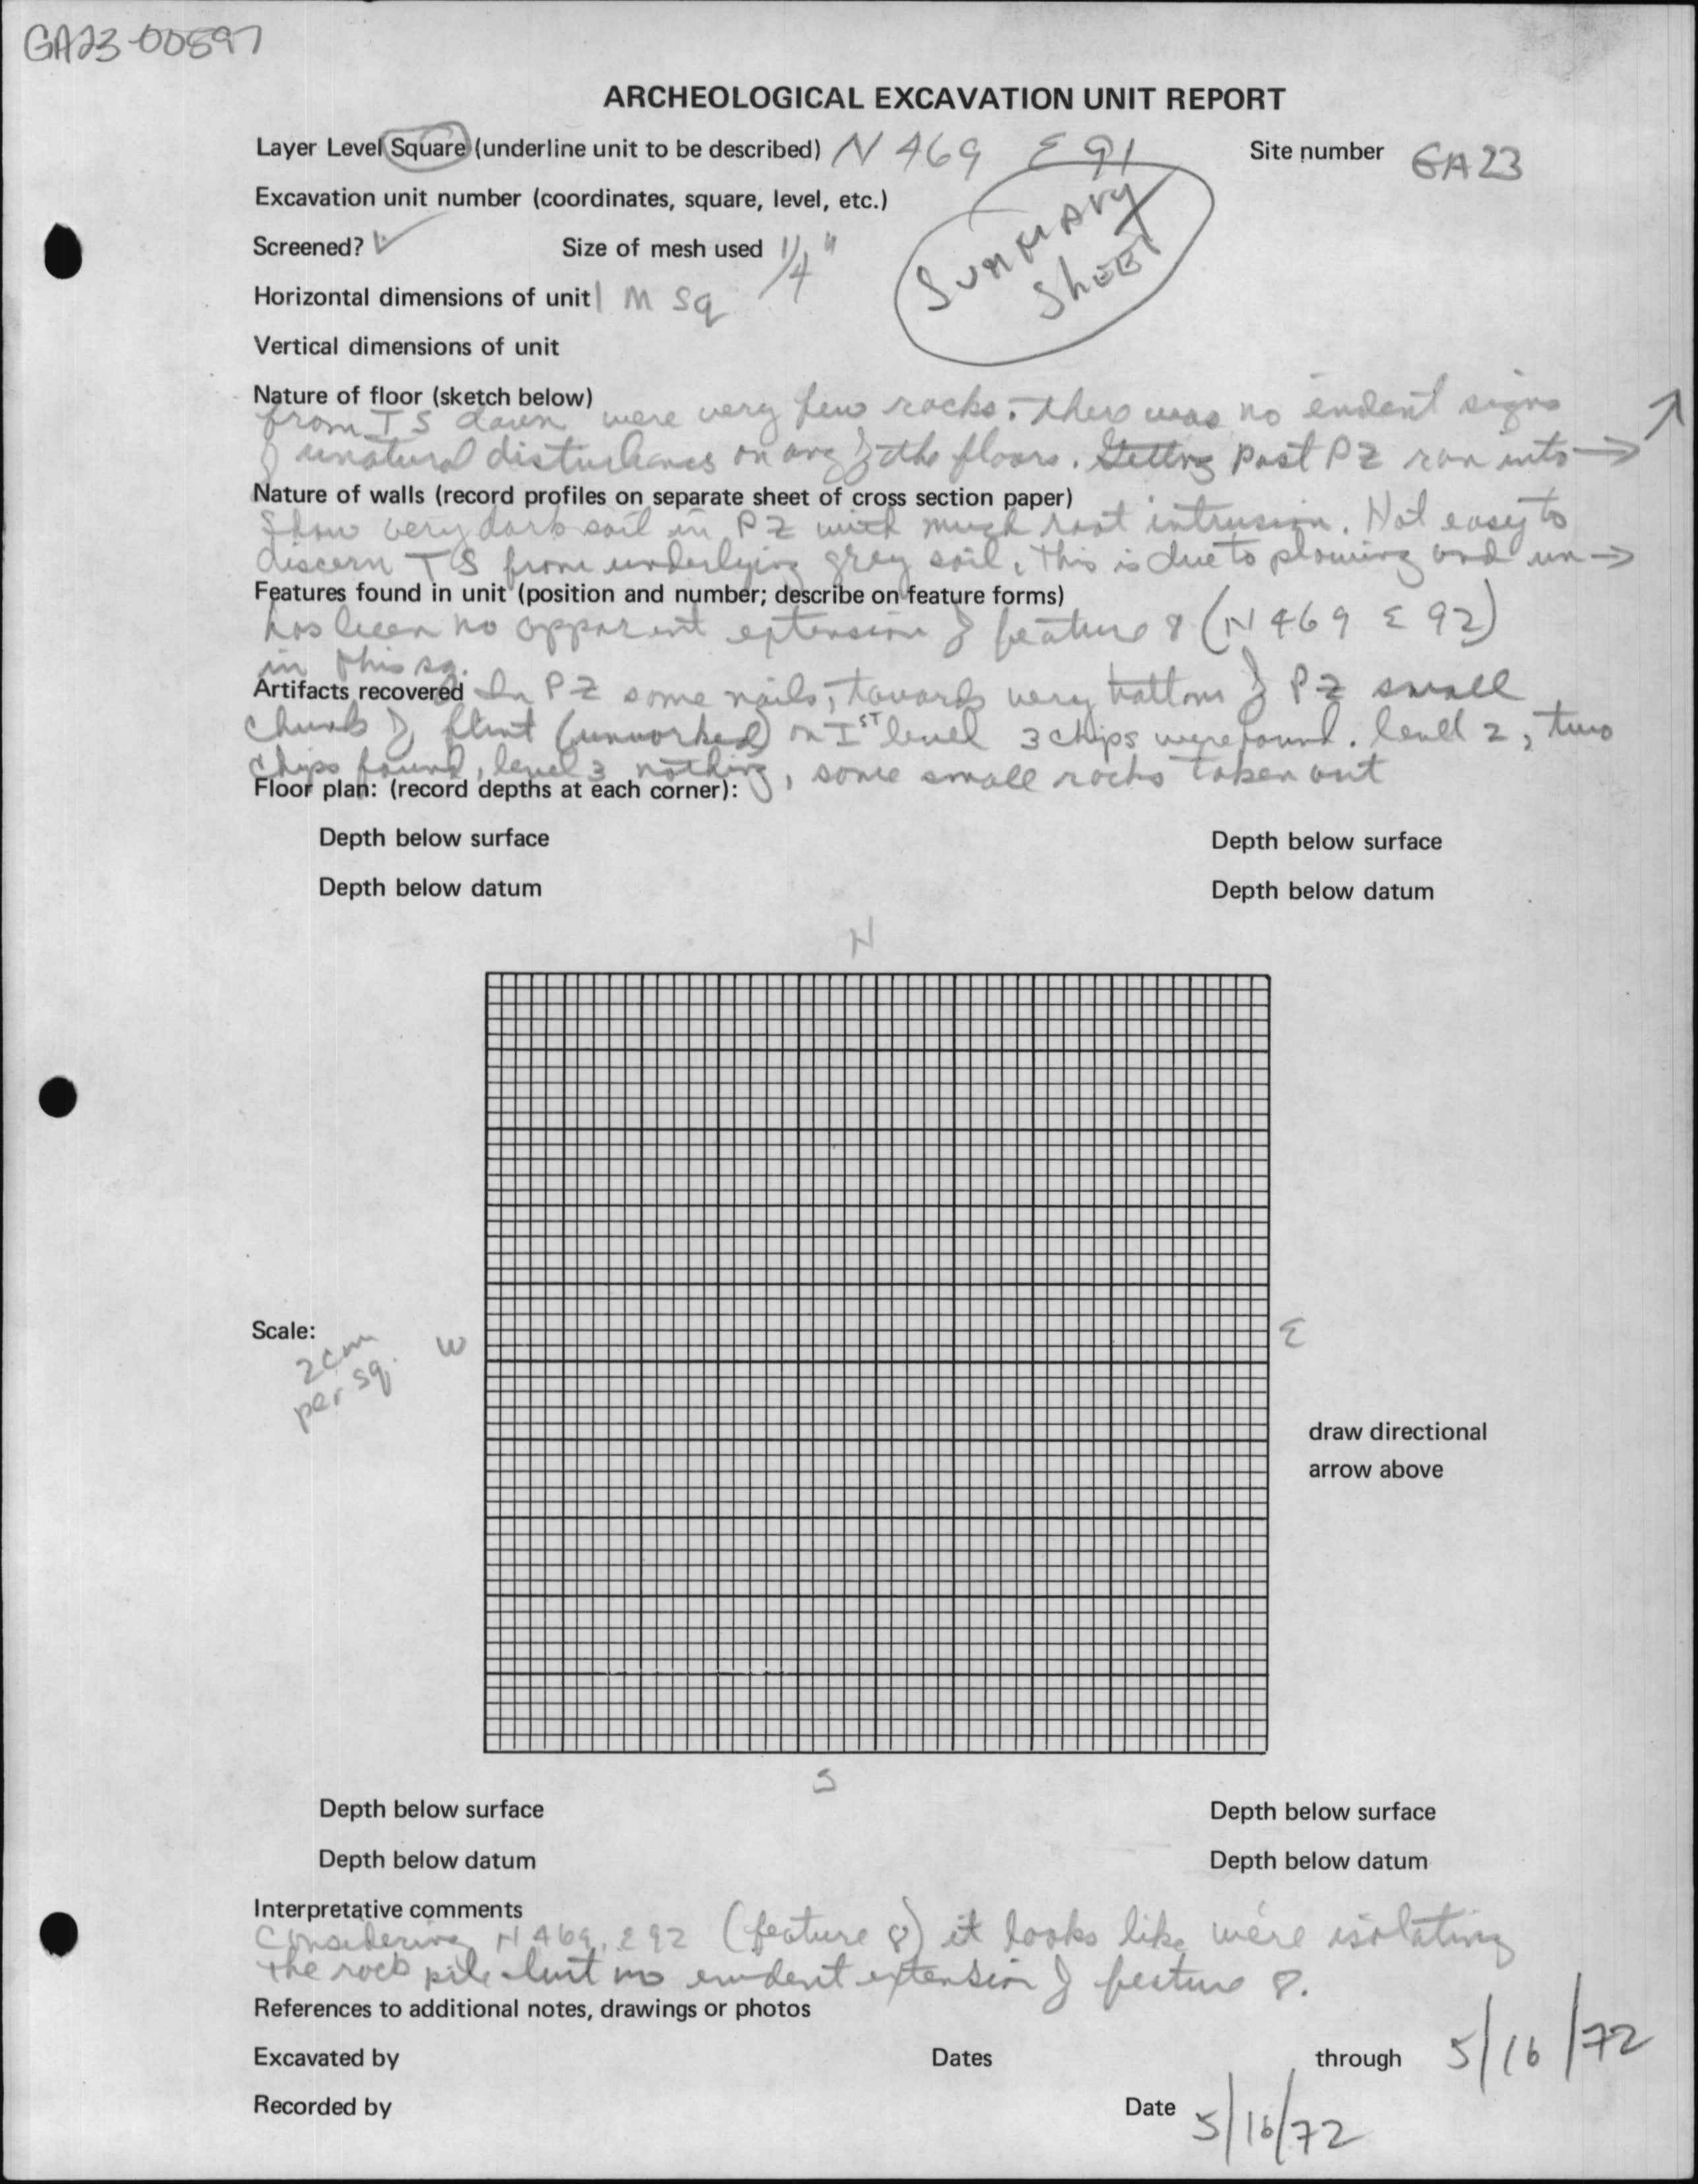 GA23-00597
ARCHEOLOGICAL EXCAVATION UNIT REPORT
Layer Level Square (underline unit to be described) N 469 E 91 Site number GA23
Excavation unit number (coordinates, square, level, etc.)
Summary Sheet
Screened? ✓ Size of mesh used 1/4"
Horizontal dimensions of unit 1 M Sq
Vertical dimensions of unit
Nature of floor (sketch below)
from TS down were very few rocks. There was no evident signs
of unatural disturbances on any of the floors. Getting past PZ ran into →
Nature of walls (record profiles on separate sheet of cross section paper)
Show very dark soil in PZ with much root intrusion. Not easy to
discern TS from underlying grey soil, this is due to plowing and un →
Features found in unit (position and number; describe on feature forms)
has been no apparent extension of feature 8 (N 469 E 92)
in this sq.
Artifacts recovered In PZ some nails, towards very bottom of PZ small
chunks of flint (unworked) on 1ST level 3 chips were found. level 2, two
chips found, level 3 nothing, some small rocks taken out
Floor plan: (record depths at each corner):
Depth below surface Depth below surface
Depth below datum Depth below datum
N
Scale: 2cm per sq.
W E
draw directional
arrow above
S
Depth below surface Depth below surface
Depth below datum Depth below datum
Interpretative comments
Considering N 469, E 92 (feature 8) it looks like we're isolating
the rock pile but no evident extension of feature 8.
References to additional notes, drawings or photos
Excavated by Dates through 5/16/72
Recorded by Date 5/16/72